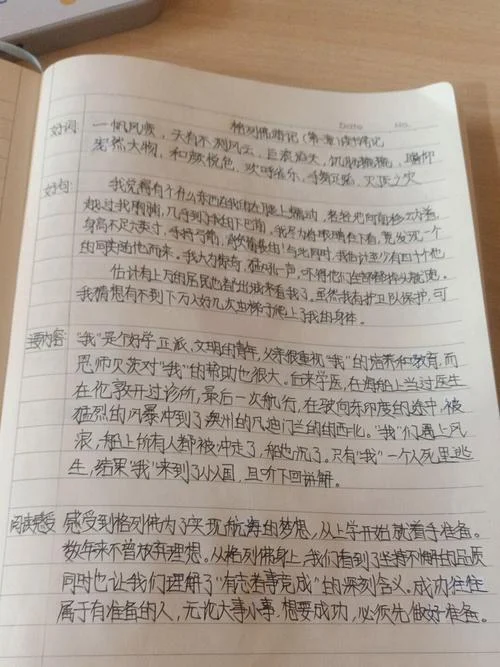 格列佛游记(第一章)读书笔记
Date No.
好词: 一帆风顺,天有不测风云,巨浪滔天,饥肠辘辘,瞻仰
庞然大物,和颜悦色,欢呼雀乐,手舞足蹈,灭顶之灾
好句: 我觉得有个什么东西在我的左腿上蠕动,轻轻地向前移动着
越过我胸脯,几乎到了我的下巴前,我尽力将眼睛往下看,竟发现一个
身高不足六英寸,手持弓箭,背负箭袋的人!与此同时,我估计至少有四十个他
的同类随他而来。我大为惊奇,猛吼一声,吓得他们全部掉头就跑。
估计有上万的居民也都出城来看我了。虽然我有护卫队保护,可
我猜想有不到下万人好几次由梯子爬上了我的身体。
主要内容: “我”是个好学,正派,文明的青年,父亲很重视“我”的培养和教育,而
恩师贝茨对“我”的帮助也很大。后来学医,在海船上当过医生
在伦敦开过诊所,最后一次航行,在驶向东印度的途中,被
猛烈的风暴冲到了澳州的凡迪门兰的的西北。“我”们遇上风
浪,船上所有人都被冲走了,船也沉了。只有“我”一个人死里逃
生,结果“我”来到了小人国,且听下回讲解。
阅读感受 感受到格列佛为了实现航海的梦想,从上学开始就着手准备。
数年来不曾放弃理想。从格列佛身上,我们看到了坚持不懈的品质
同时也让我们理解了“有志者事竟成”的深刻含义。成功往往
属于有准备的人,无论大事小事,想要成功,必须先做好准备。